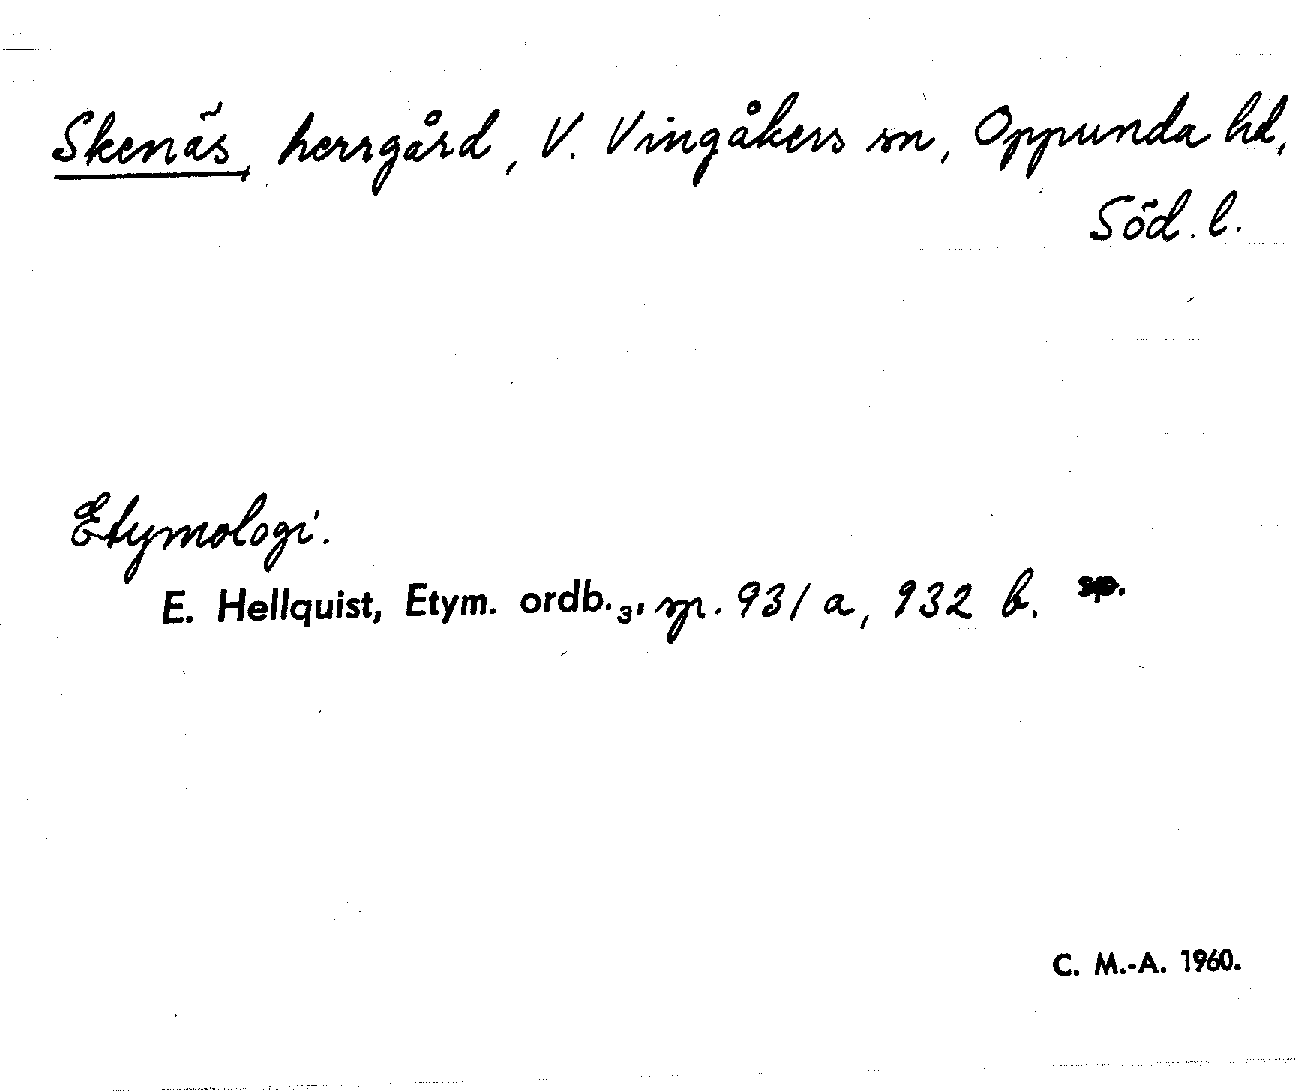 Skenäs, herrgård, V. Vingåkers sn, Oppunda hd,
Söd. l.
Etymologi.
E. Hellquist, Etym. ordb.₃, sp. 931 a, 932 b. sp.
C. M.-A. 1960.